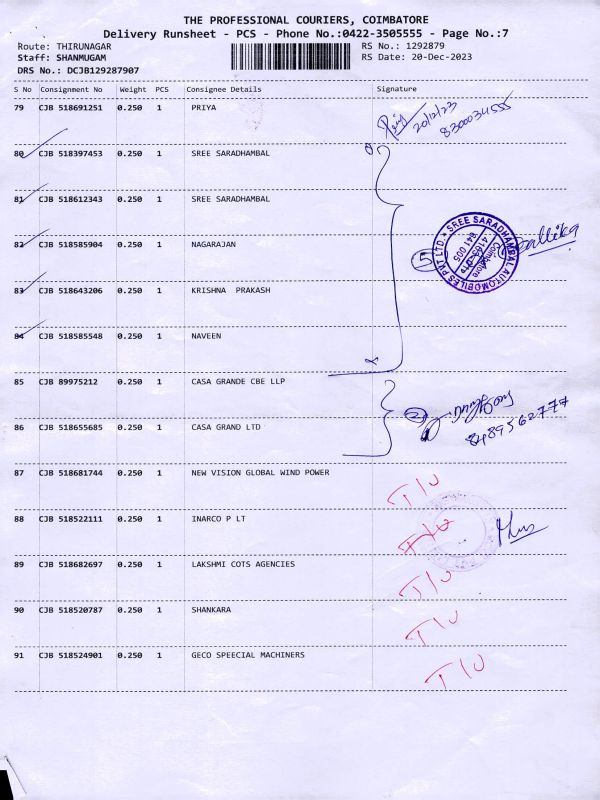 THE PROFESSIONAL COURIERS, COIMBATORE
Delivery Runsheet - PCS - Phone No.:0422-3505555 - Page No.:7
Route: THIRUNAGAR
RS No.: 1292879
Staff: SHANMUGAM
RS Date: 20-Dec-2023
DRS No.: DCJB129287907
S No Consignment No Weight PCS Consignee Details Signature
79 CJB 518691251 0.250 1 PRIYA
20/12/23
8300034555
80 CJB 518397453 0.250 1 SREE SARADHAMBAL
81 CJB 518612343 0.250 1 SREE SARADHAMBAL
82 CJB 518585904 0.250 1 NAGARAJAN
5
SREE SARADHAMBAL AUTOMOBILES PVT LTD.
Coimbatore
641 005
83 CJB 518643206 0.250 1 KRISHNA PRAKASH
84 CJB 518585548 0.250 1 NAVEEN
85 CJB 89975212 0.250 1 CASA GRANDE CBE LLP
2
8489562777
86 CJB 518655685 0.250 1 CASA GRAND LTD
87 CJB 518681744 0.250 1 NEW VISION GLOBAL WIND POWER
T/U
88 CJB 518522111 0.250 1 INARCO P LT
T/U
89 CJB 518682697 0.250 1 LAKSHMI COTS AGENCIES
T/U
90 CJB 518520787 0.250 1 SHANKARA
T/U
91 CJB 518524901 0.250 1 GECO SPEECIAL MACHINERS
T/U